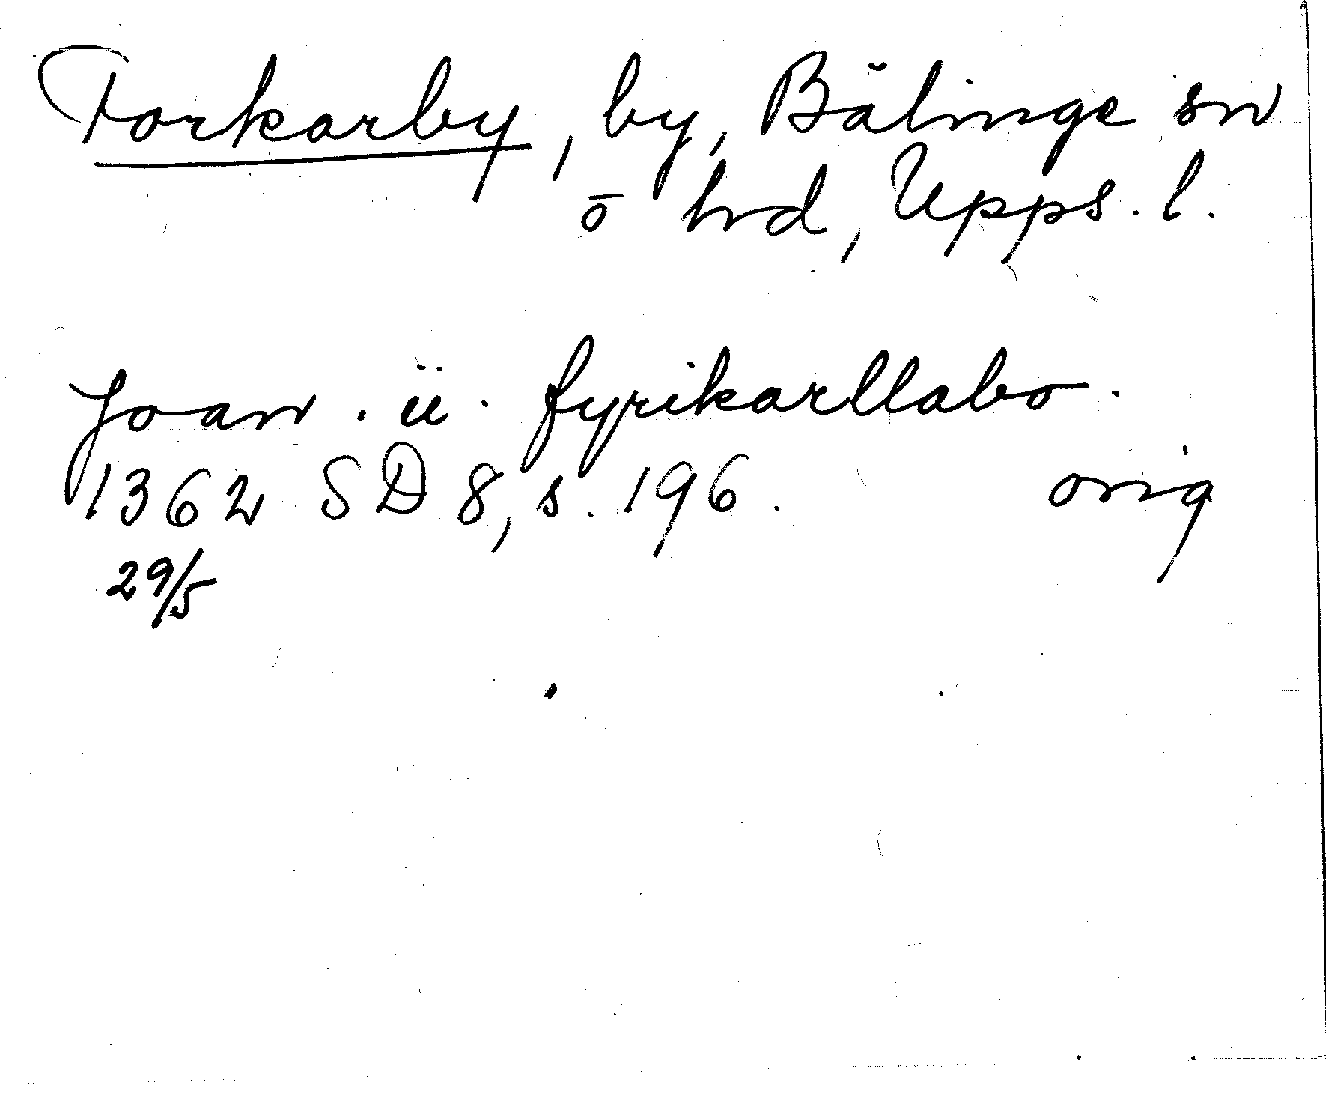 Forkarby, by, Bälinge sn
o hrd, Upps. l.
Joan . ii . fyrikarllabo .
1362 SD 8, s. 196. orig
29/5